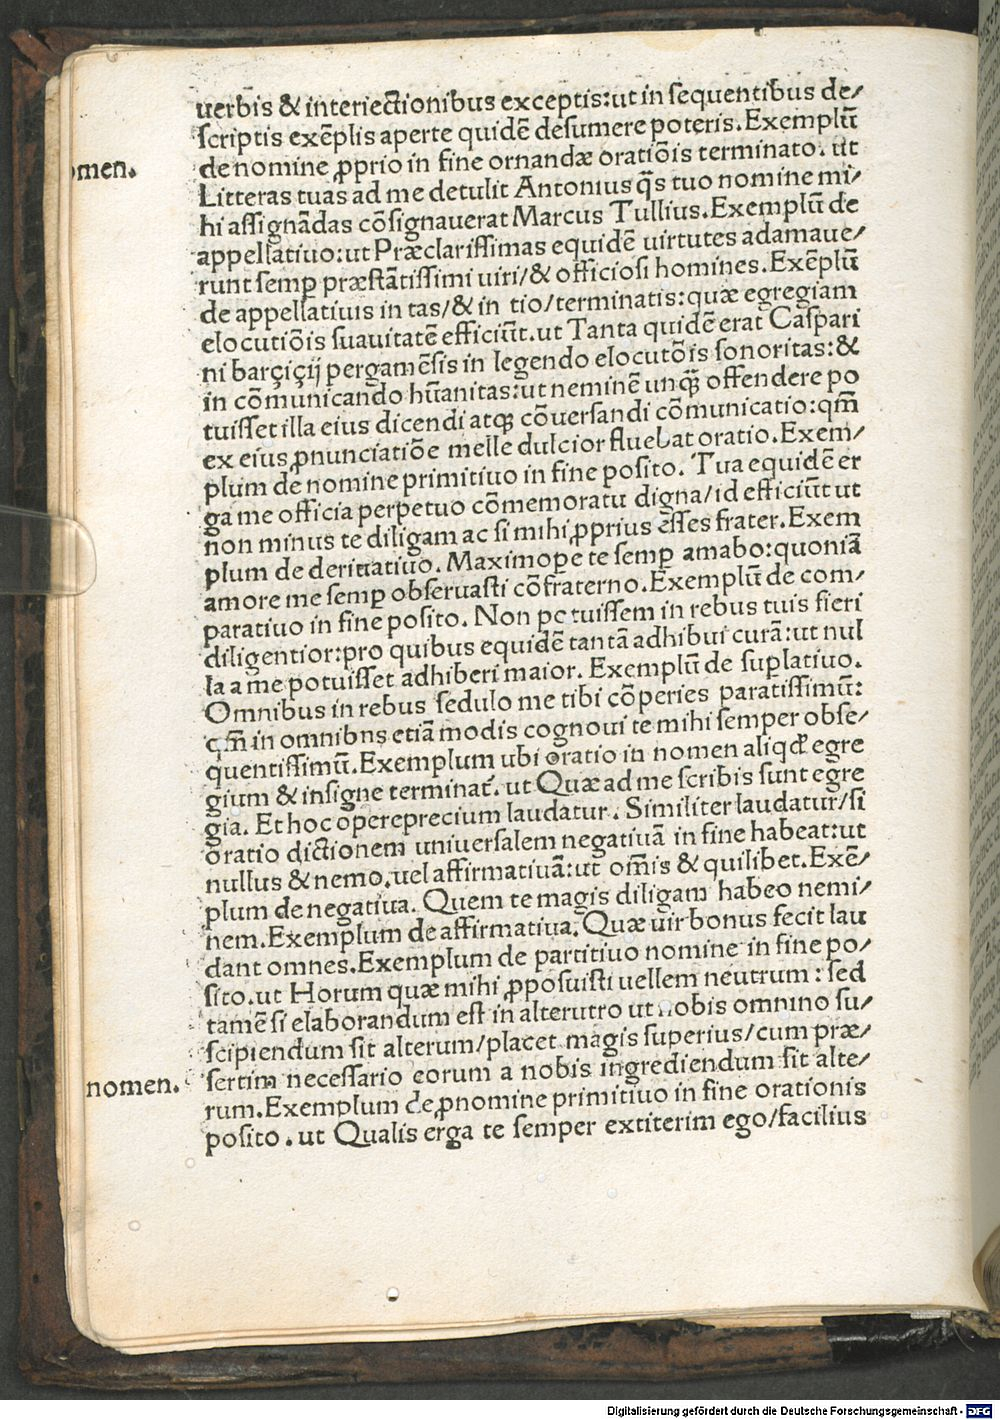 uerbis & interiectionibus exceptis:ut in sequentibus de/
scriptis exẽplis aperte quidẽ desumere poteris.Exemplũ
de nomine ꝓprio in fine ornandæ oratiõis terminato. ut
omen.
Litteras tuas ad me detulit Antonius q̃s tuo nomine mi/
hi assignãdas cõsignauerat Marcus Tullius.Exemplũ de
appellatiuo:ut Præclarissimas equidẽ uirtutes adamaue/
runt semꝑ præstãtissimi uiri/& officiosi homines.Exẽplũ
de appellatiuis in tas/& in tio/terminatis:quæ egregiam
elocutiõis suauitatẽ efficiũt.ut Tanta quidẽ erat Caspari
ni barçiçij pergamẽsis in legendo elocutõis sonoritas:&
in cõmunicando hũanitas:ut neminẽ unq̃ꝫ offendere po
tuisset illa eius dicendi atqꝫ cõuersandi cõmunicatio:qm̃
ex eius ꝓnunciatiõe melle dulcior fluebat oratio.Exem/
plum de nomine primitiuo in fine posito. Tua equidẽ er
ga me officia perpetuo cõmemoratu digna/id efficiũt ut
non minus te diligam ac si mihi ꝓprius esses frater.Exem
plum de deriuatiuo. Maximoꝑe te semꝑ amabo:quoniã
amore me semꝑ obseruasti cõfraterno.Exemplũ de com/
paratiuo in fine posito. Non potuissem in rebus tuis fieri
diligentior:pro quibus equidẽ tantã adhibui curã:ut nul
la a me potuisset adhiberi maior. Exemplũ de suꝑlatiuo.
Omnibus in rebus sedulo me tibi cõperies paratissimũ:
qm̃ in omnibns etiã modis cognoui te mihi semper obse/
quentissimũ.Exemplum ubi oratio in nomen aliqđ egre
gium & insigne terminat᷑. ut Quæ ad me scribis sunt egre
gia. Et hoc opereprecium laudatur. Similiter laudatur/si
oratio dictionem uniuersalem negatiuã in fine habeat:ut
nullus & nemo.uel affirmatiuã:ut om̃is & quilibet.Exẽ/
plum de negatiua. Quem te magis diligam habeo nemi/
nem.Exemplum de affirmatiua.Quæ uir bonus fecit lau
dant omnes.Exemplum de partitiuo nomine in fine po/
sito.ut Horum quæ mihi ꝓposuisti uellem neutrum : sed
tamẽ si elaborandum est in alterutro ut nobis omnino su/
scipiendum sit alterum/placet magis superius/cum præ/
nomen.
sertim necessario eorum a nobis ingrediendum sit alte/
rum.Exemplum de ꝓnomine primitiuo in fine orationis
posito. ut Qualis erga te semper extiterim ego/facilius
Digitalisierung gefördert durch die Deutsche Forschungsgemeinschaft - DFG